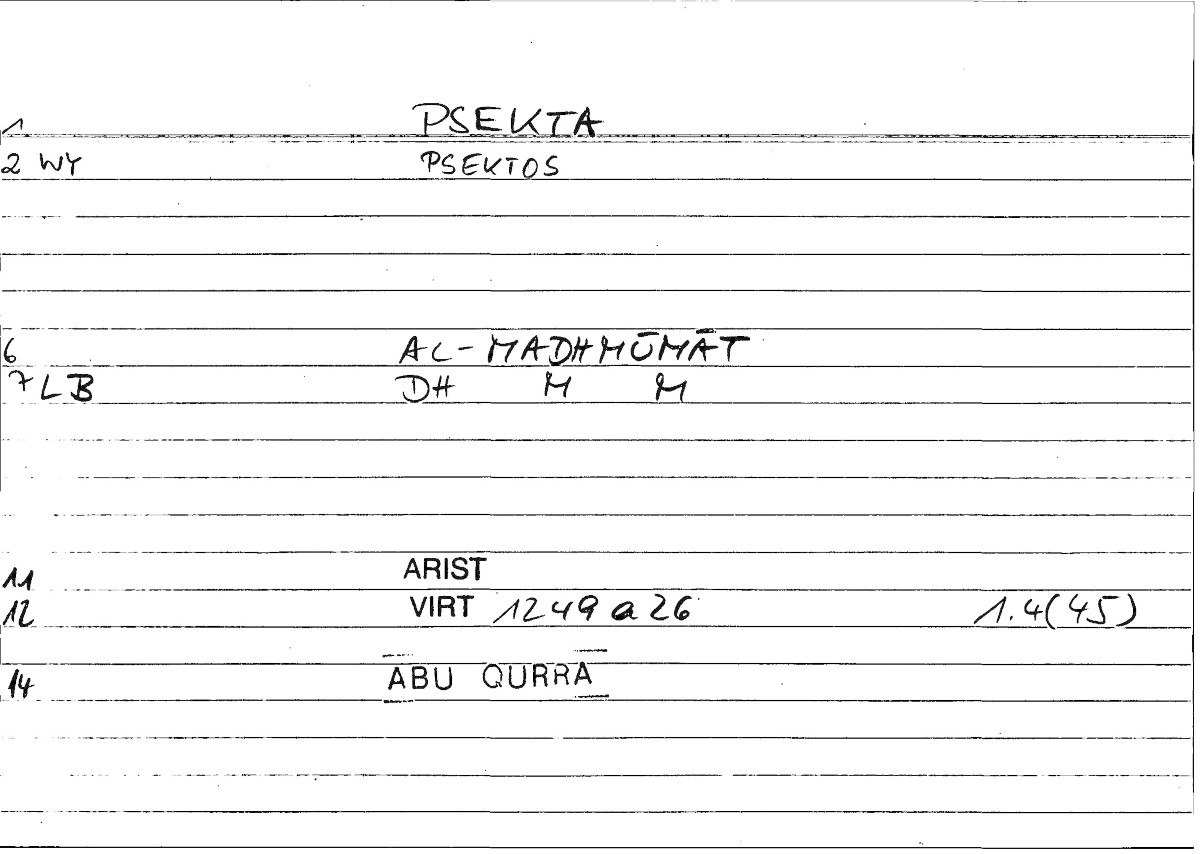 1 PSEKTA
2 WY PSEKTOS
6 AL-MADHMŪMĀT
7 LB DH M M
11 ARIST
12 VIRT 1249 a 26 1.4(45)
14 ABU QURRA